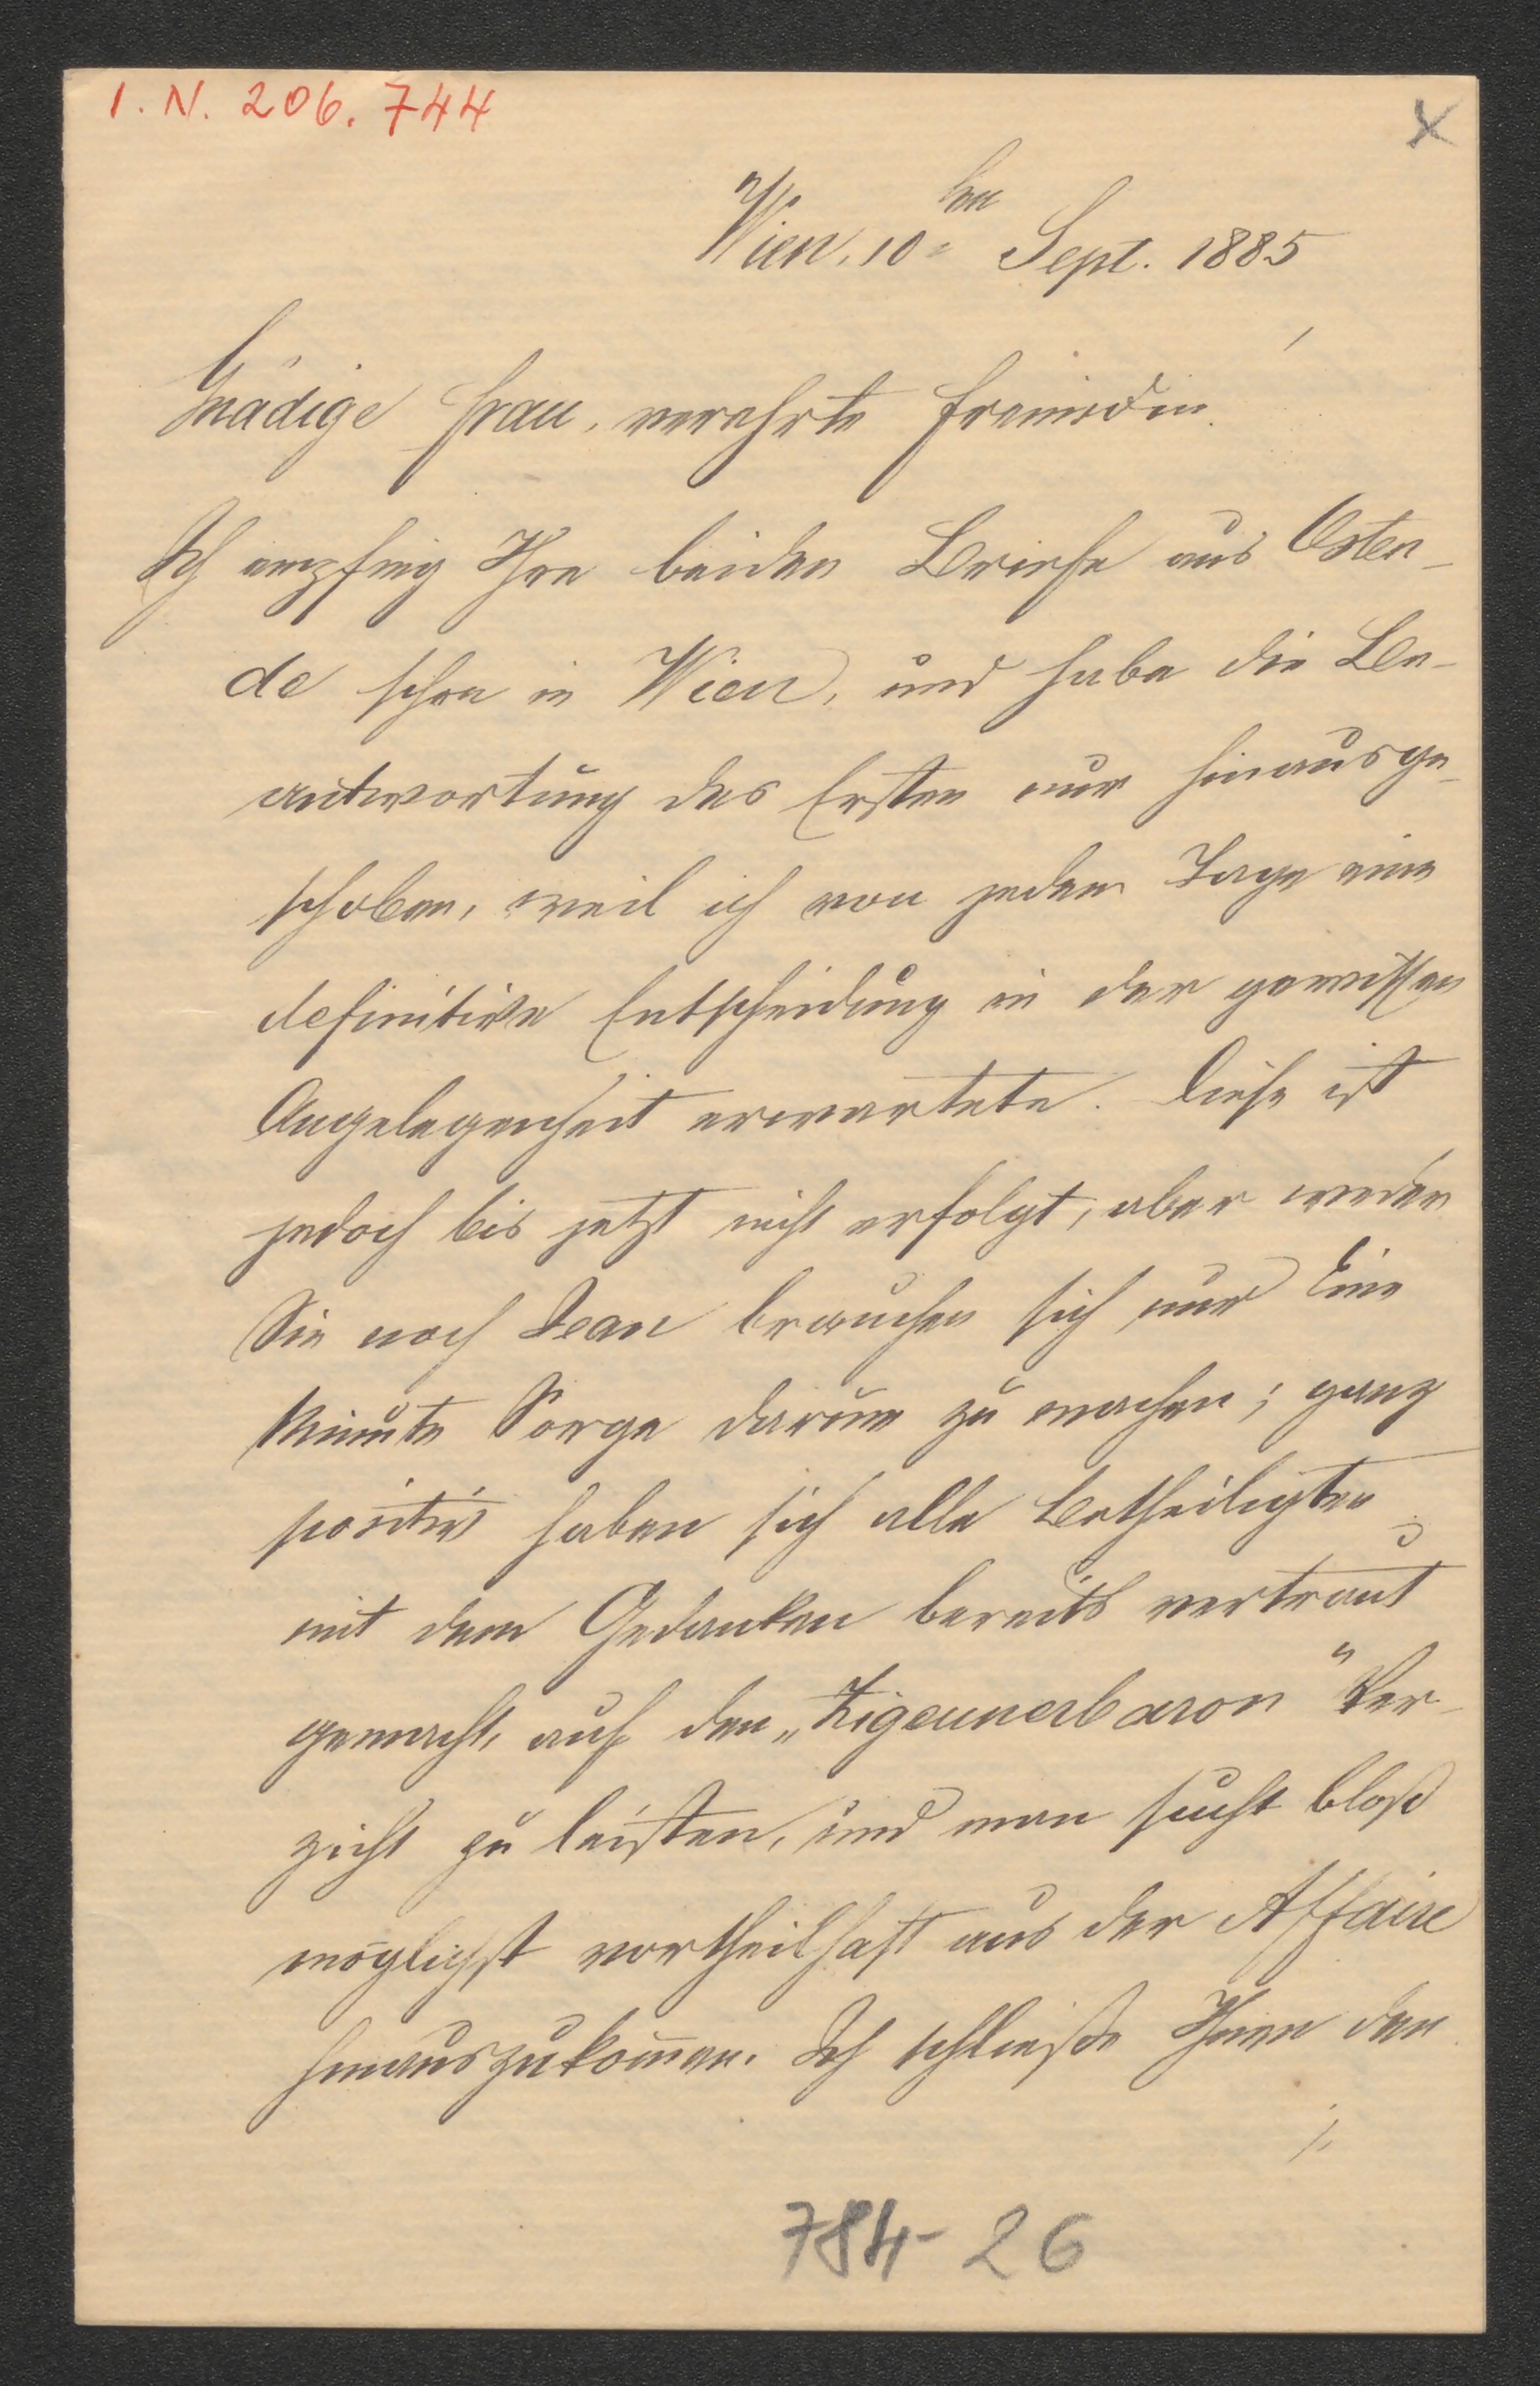 I. N. 206.744
x
Wien, 10ten Sept. 1885
Gnädige Frau, verehrte Freundin!
Ich empfing Ihre beiden Briefe aus Osten-
de schon in Wien, und habe die Be-
antwortung des Ersten nur hinausge-
schoben, weil ich von jedem Tage eine
definitive Entscheidung in der gewissen
Angelegenheit erwartete. Diese ist
jedoch bis jetzt nicht erfolgt, aber weder
Sie noch Jean brauchen sich nur Eine
Minute Sorge darum zu machen; ganz
positiv haben sich alle Betheiligten
mit dem Gedanken bereits vertraut
gemacht, auf den „Zigeunerbaron" Ver-
zicht zu leisten, und man sucht bloß
möglichst vortheilhaft aus der Affaire
hinauszukom̄en. Ich schließe Ihnen den
./.
784-26